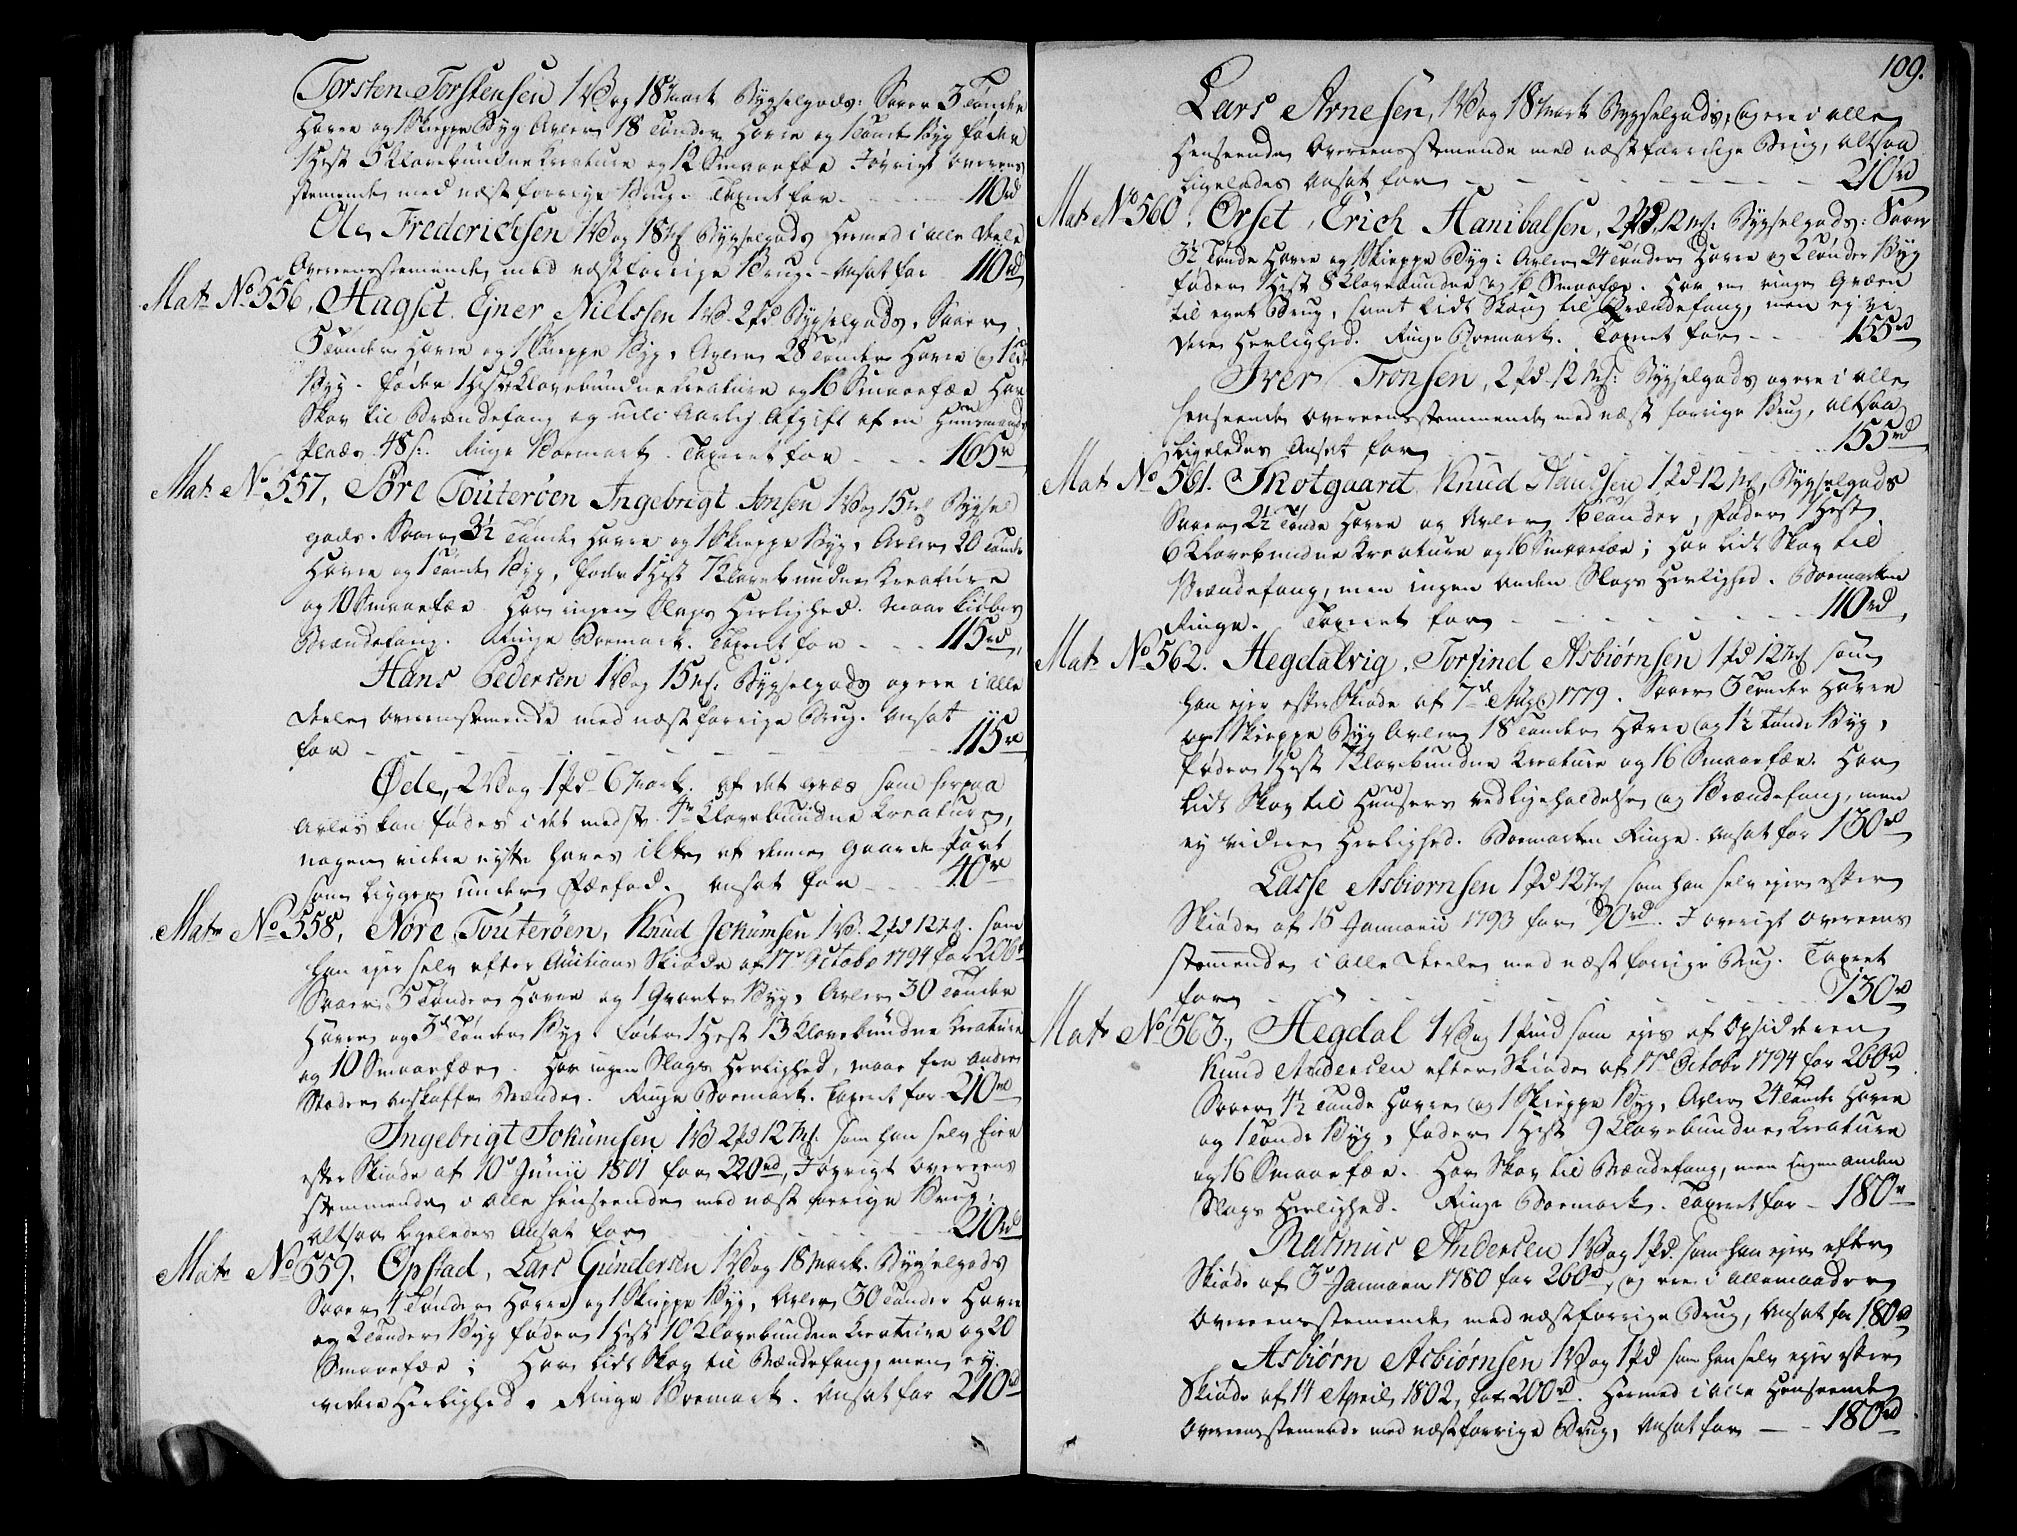 Torsten Torstensen 1 Vog 18 Mark Bygselgods: Saaer 3 Tønder
Havre og 1 Skieppe Byg Avler 18 Tønder Havre og 1 Tønde Byg føder
1 Hest 5 Klovebundne Kreature og 12 Smaafæe Iøvrigt overeens
stemmende med næstforrige Brug. Taxeret for 110 rd
Ole Frederichsen 1 Vog 18 Mk Bygselgods hermed i alle Deele
Overeensstemmende med næstforrige Brug. Ansat for 110 rd
Mat No 556, Hagset. Ejner Nielssen 1 V. 2 pd Bygselgods. Saaer
5 Tønder Havre og 1 Skieppe Byg, Avler 28 Tønder Havre og 1 Td
Byg. føder 1 Hest Klovebundne Kreature og 16 Smaafæe Har
Skov til Brændefang og udi Aarlig Afgift af en Huusmands
Plads 48 s. Ringe Boemark. Taxeret for 165 rd
Mat No 557, Søre Touterøen Ingebrigt Jonsen 1 Vog 15 Mk Bygsel
gods. Saaer 3½ Tønde Havre og 1 Skieppe Byg, Avler 20 Tønde
Havre og 1 Tønde Byg, føder 1 Hest 7 Klovebundne Kreature
og 10 Smaafæe. Har ingen Slags Herlighed. Maae kiøbes
Brændefang. Ringe Boemark. Taxeret for 115 rd
Hans Pedersen 1 Vog 15 Mk. Bygselgods og ere i alle
Deele overeenstemmende med næstforrige Brug. Ansat
for 115 rd
Øde, 2 Vog 1 Pd 6 Mark. af det græs som herpaa
Avles kan fødes i det meeste 4re Klovebundne Kreature,
nogen videre nytte haves ikke af denne Gaarde Part
som ligger under Fæefod. Ansat for 40 rd
Mat No 558, Nøre Touterøen, Knud Jokumsen 1 V. 2 pd 12 Mk. som
han ejer selv efter Auctions Skiøde af 17 October 1794 for 206 rd
Saaer 5 Tønder Havre og 1 Qvarter Byg, Avler 30 Tønder
Havre og 3 Tønder Byg. føder 1 Hest 13 Klovebundne Kreature
og 10 Smaafæe. Har ingen Slags Herlighed, maae fra andre
Stæder anskaffe Brænde. Ringe Boemark. Taxeret for 210 rd
Ingebrigt Jokumsen 1 V 2 pd 12 Mk. som han selv Eier
efter Skiøde af 10 Junii 1801 for 220 rd, Iøvrigt overeens
stemmende i alle henseende med næst forrige Brug,
altsaa ligeledes Ansat for 210 rd
Mat No 559, Opstad, Lars Gundersen 1 Vog 18 Mark Bygselgods
Saaer 4 Tønder Havre og 1 Skieppe Byg, Avler 30 Tønder Havre
og 2 Tønder Byg føder 1 Hest 10 Klovebundne Kreature og 20
Smaafæe; Har lidt Skov til Brændefang, men ey
videre Herlighed. Ringe Boemark. Ansat for 210 rd
109.
Lars Arnesen, 1 Vog 18 Mark Bygselgods, og ere i alle
Henseende Overeensstemmende med næstforrige Brug, altsaa
Ligeledes Ansat for 210 rd
Mat No 560, Orset, Erich Hanibalsen, 2 pd, 12 Mk: Bygselgods: Saaer
3½ Tønde Havre og 1 Skieppe Byg: Avler 24 Tønder Havre og 2 Tønder Byg
føder 1 Hest 8 Klovebundne og 16 Smaafæe. Har en ringe Qværn
til eget Brug, samt lidt Skoug til Brændefang, men ej vi
dere Herlighed. Ringe Boemark. Taxeret for 155 rd
Iver Tronsen, 2 pd 12 Mk: Bygselgods og ere i alle
Henseende overeensstemmende med næst forrige Brug, altsaa
Ligeledes Ansat for 155 rd
Mat No 561. Skotgaard Knud Paulsen 1 pd 12 Mk, Bygselgods
Saaer 2½ Tønde Havre og Avler 16 Tønder, føder 1 Hest
6 Klovebundne Kreature og 16 Smaafæe; har lidt Skov til
Brændefang, men ingen anden Slags Herlighed. Boemarken
Ringe. Taxeret for 110 rd.
Mat No 562. Hegdalvig. Torfind Asbiørnsen 1 pd 12 Mk som
han ejer efter Skiøde af 7de Aug 1779. Saaer 3 Tønder Havre
og 1 Skieppe Byg Avler 18 Tønder Havre og 1½ Tønde Byg,
føder 1 Hest 7 Klovebundne Kreature og 16 Smaafæe. Har
lidt Skov til Huusers vedligeholdelse og Brændefang, men
ey videre Herlighed. Boemarken Ringe. Ansat for 130 rd
Lasse Asbiørnsen 1 pd 12 Mk som han selv ejer efter
Skiøde af 15 Januarii 1793 for 90 rd. Iøvrigt overeens
stemmende i alle Deele med næstforrige Brug. Taxeret
for 130 rd
Mat No 563., Hegdal 1 Vog 1 Pund som ejes af Opsidderen
Knud Andersen efter Skiøde af 17de Octobr 1794 for 260 rd
Saaer 4½ Tønde Havre og 1 Skieppe Byg, Avler 24 Tønder Havre
og 1 Tønde Byg, føder 1 Hest 9 Klovebundne Kreature
og 16 Smaafæe. Har Skov til Brændefang, men Ingen anden
Slags Herlighed. Ringe Boemark. Taxeret for 180 rd
Rasmus Andersen 1 Vog 1 pd. som han ejer efter
Skiøde af 3 Januarii 1780 for 260 rd, og ere i allemaader
Overeensstemmende med næstforrige Brug, Ansat for 180 rd
Asbiørn Asbiørnsen 1 Vog 1 pd som han selv ejer efter
Skiøde af 14 April 1802, for 200 rd. Hermed i alle Henseende
Overeensstemmende med næstforrige Brug, Ansat for 180 rd